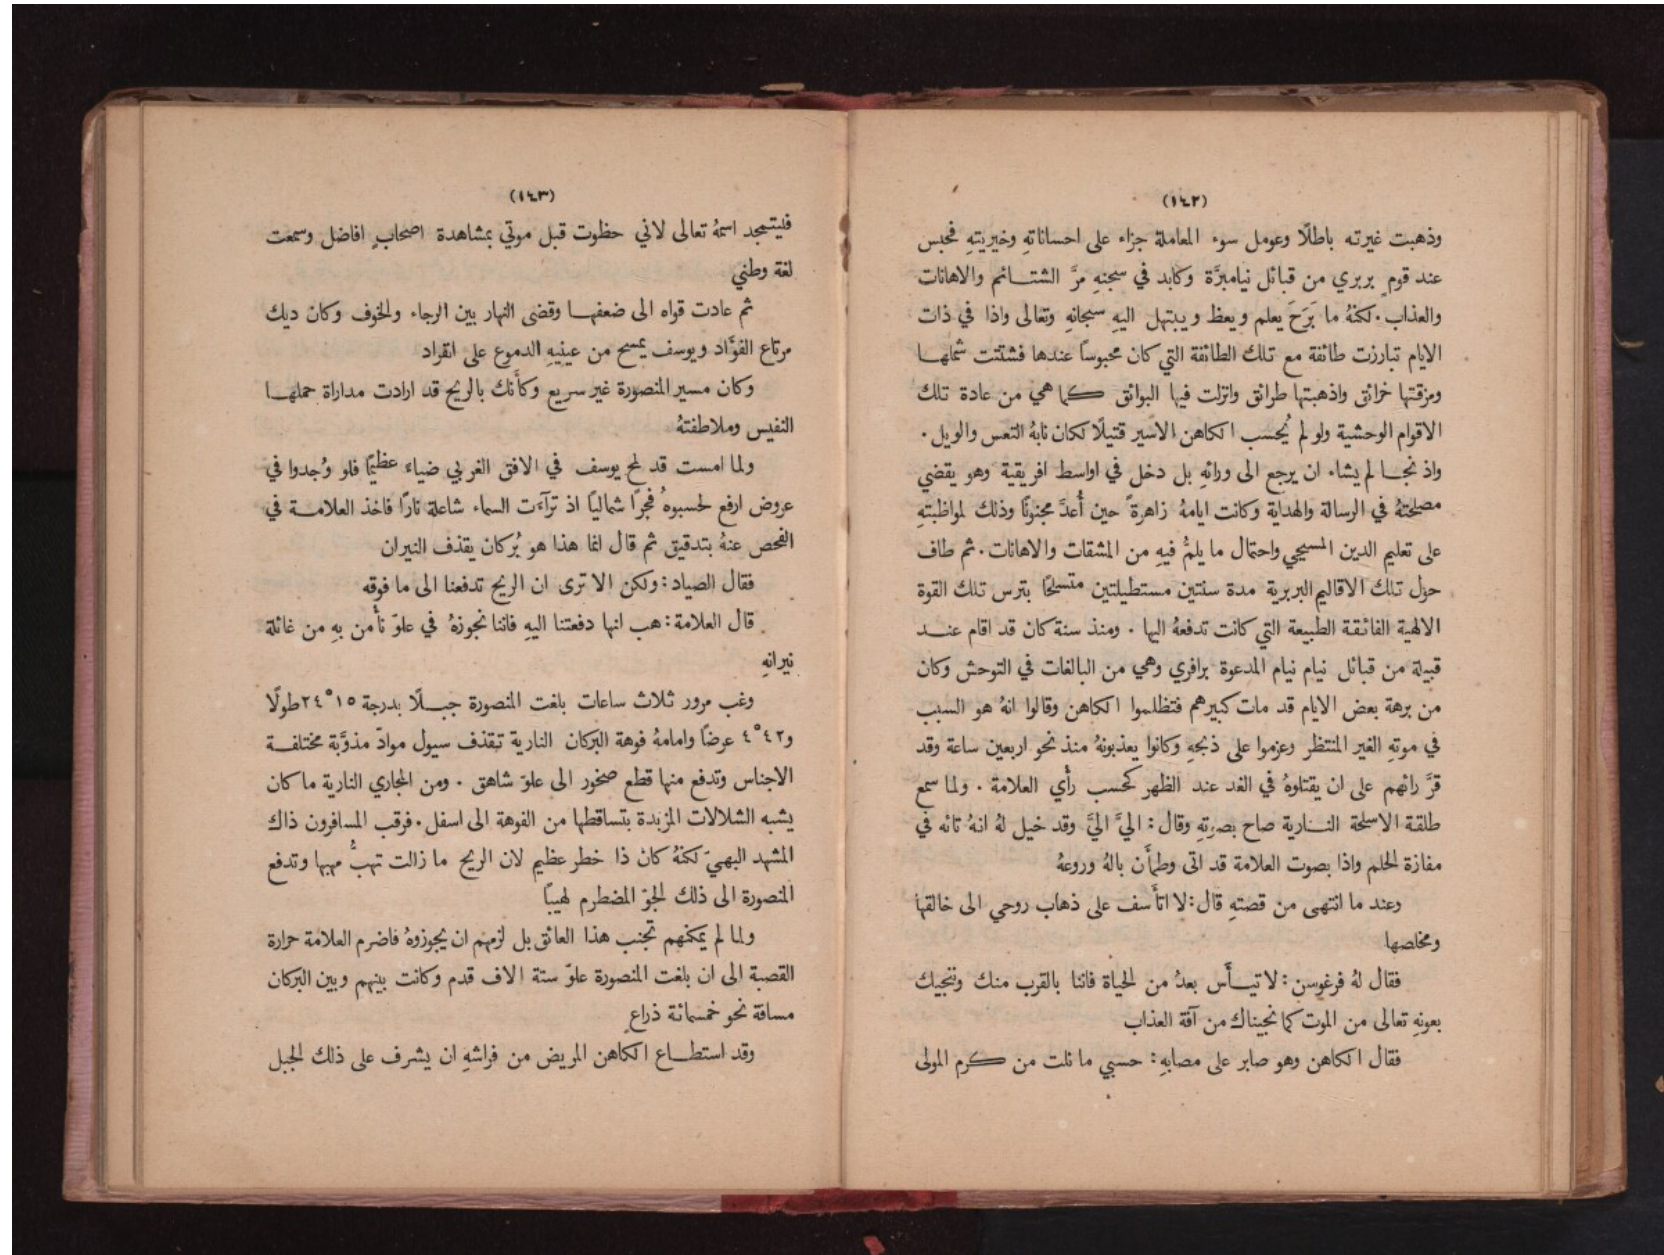 (١٤٢)
وذهبت غيرته باطلًا وعومل سوء المعاملة جزاء على احساناتهِ وخيريتهِ فحبس
عند قومٍ بربري من قبائل نيامبرَّة وكابد في سجنهِ مرَّ الشتــائم والاهانات
والعذاب. لكنهُ ما بَرَحَ يعلم ويعظ ويبتهل اليهِ سبحانهِ وتعالى واذا في ذات
الايام تبارزت طائفة مع تلك الطائفة التي كان محبوسًا عندها فشتتت شملهــا
ومزقتها خرائق واذهبتها طرائق وانزلت فيها البوائق كما هي من عادة تلك
الاقوام الوحشية ولو لم يُحسب الكاهن الاسير قتيلًا لكان نابهُ التعس والويل.
واذ نجــا لم يشاء ان يرجع الى ورائهِ بل دخل في اواسط افريقية وهو يقضي
مصلحتهُ في الرسالة والهداية وكانت ايامهُ زاهرةً حين أُعدَّ مجنونًا وذلك لمواظبتهِ
على تعليم الدين المسيحي واحتمال ما يلمُّ فيهِ من المشقات والاهانات. ثم طاف
حول تلك الاقاليم البربرية مدة سنتين مستطيلتين متسلحًا بترس تلك القوة
الالهية الفائقة الطبيعة التي كانت تدفعهُ اليها. ومنذ سنة كان قد اقام عنــد
قبيلة من قبائل نيام نيام المدعوة برافري وهي من البالغات في التوحش وكان
من برهة بعض الايام قد مات كبيرهم فتظلموا الكاهن وقالوا انهُ هو السبب
في موتهِ الغير المنتظر وعزموا على ذبحهِ وكانوا يعذبونهُ منذ نحو اربعين ساعة وقد
قرَّ رائهم على ان يقتلوهُ في الغد عند الظهر كحسب رأي العلامة. ولما سمع
طلقة الاسلحة النــارية صاح بصوتهِ وقال: اليَّ اليَّ وقد خيل لهُ انهُ تائه في
مفازة الحلم واذا بصوت العلامة قد اتى وطمأَن بالهُ وروعهُ
وعند ما انتهى من قصتهِ قال: لا اتأَسف على ذهاب روحي الى خالقها
ومخلصها
فقال لهُ فرغوسن: لا تيــأَس بعدُ من الحياة فاننا بالقرب منك وننجيك
بعونهِ تعالى من الموت كما نجيناك من آفة العذاب
فقال الكاهن وهو صابر على مصابهِ: حسبي ما نلت من كرم المولى
(١٤٣)
فليتمجد اسمهُ تعالى لاني حظوت قبل موتي بمشاهدة اصحابٍ افاضل وسمعت
لغة وطني
ثم عادت قواه الى ضعفهــا وقضى النهار بين الرجاء والخوف وكان ديك
مرتاع الفؤَاد ويوسف يمسح من عينيهِ الدموع على انفراد
وكان مسير المنصورة غير سريع وكأَنك بالريح قد ارادت مداراة حملهــا
النفيس وملاطفتهُ
ولما امست قد لمح يوسف في الافق الغربي ضياءً عظيمًا فلو وُجدوا في
عروض ارفع لحسبوهُ فجرًا شماليًا اذ ترآءَت السماء شاعلة نارًا فاخذ العلامــة في
الفحص عنهُ بتدقيق ثم قال انما هذا هو بُركان يقذف النيران
فقال الصياد: ولكن الا ترى ان الريح تدفعنا الى ما فوقه
قال العلامة: هب انها دفعتنا اليهِ فاننا نجوزهُ في علوّ نأْمن بهِ من غائلة
نيرانهِ
وغب مرور ثلاث ساعات بلغت المنصورة جبــلًا بدرجة ١٥ ْ ٢٤ طولًا
و٤٢ ْ ٤ عرضًا وامامهُ فوهة البركان النارية تنقذف سيول موادّ مذوَّبة مختلفــة
الاجناس وتدفع منها قطع صخور الى علوّ شاهق. ومن المجاري النارية ما كان
يشبه الشلالات المزبدة بتساقطها من الفوهة الى اسفل. فرقب المسافرون ذاك
المشهد البهيّ لكنهُ كان ذا خطر عظيم لان الريح ما زالت تهبُّ مهبها وتدفع
المنصورة الى ذلك الجوّ المضطرم لهيبًا
ولما لم يمكنهم تجنب هذا العائق بل لزمهم ان يجوزوهُ فاضرم العلامة حرارة
القصبة الى ان بلغت المنصورة علوّ ستة الاف قدم وكانت بينهم وبين البركان
مسافة نحو خمسمائة ذراعٍ
وقد استطــاع الكاهن المريض من فراشهِ ان يشرف على ذلك الجبل